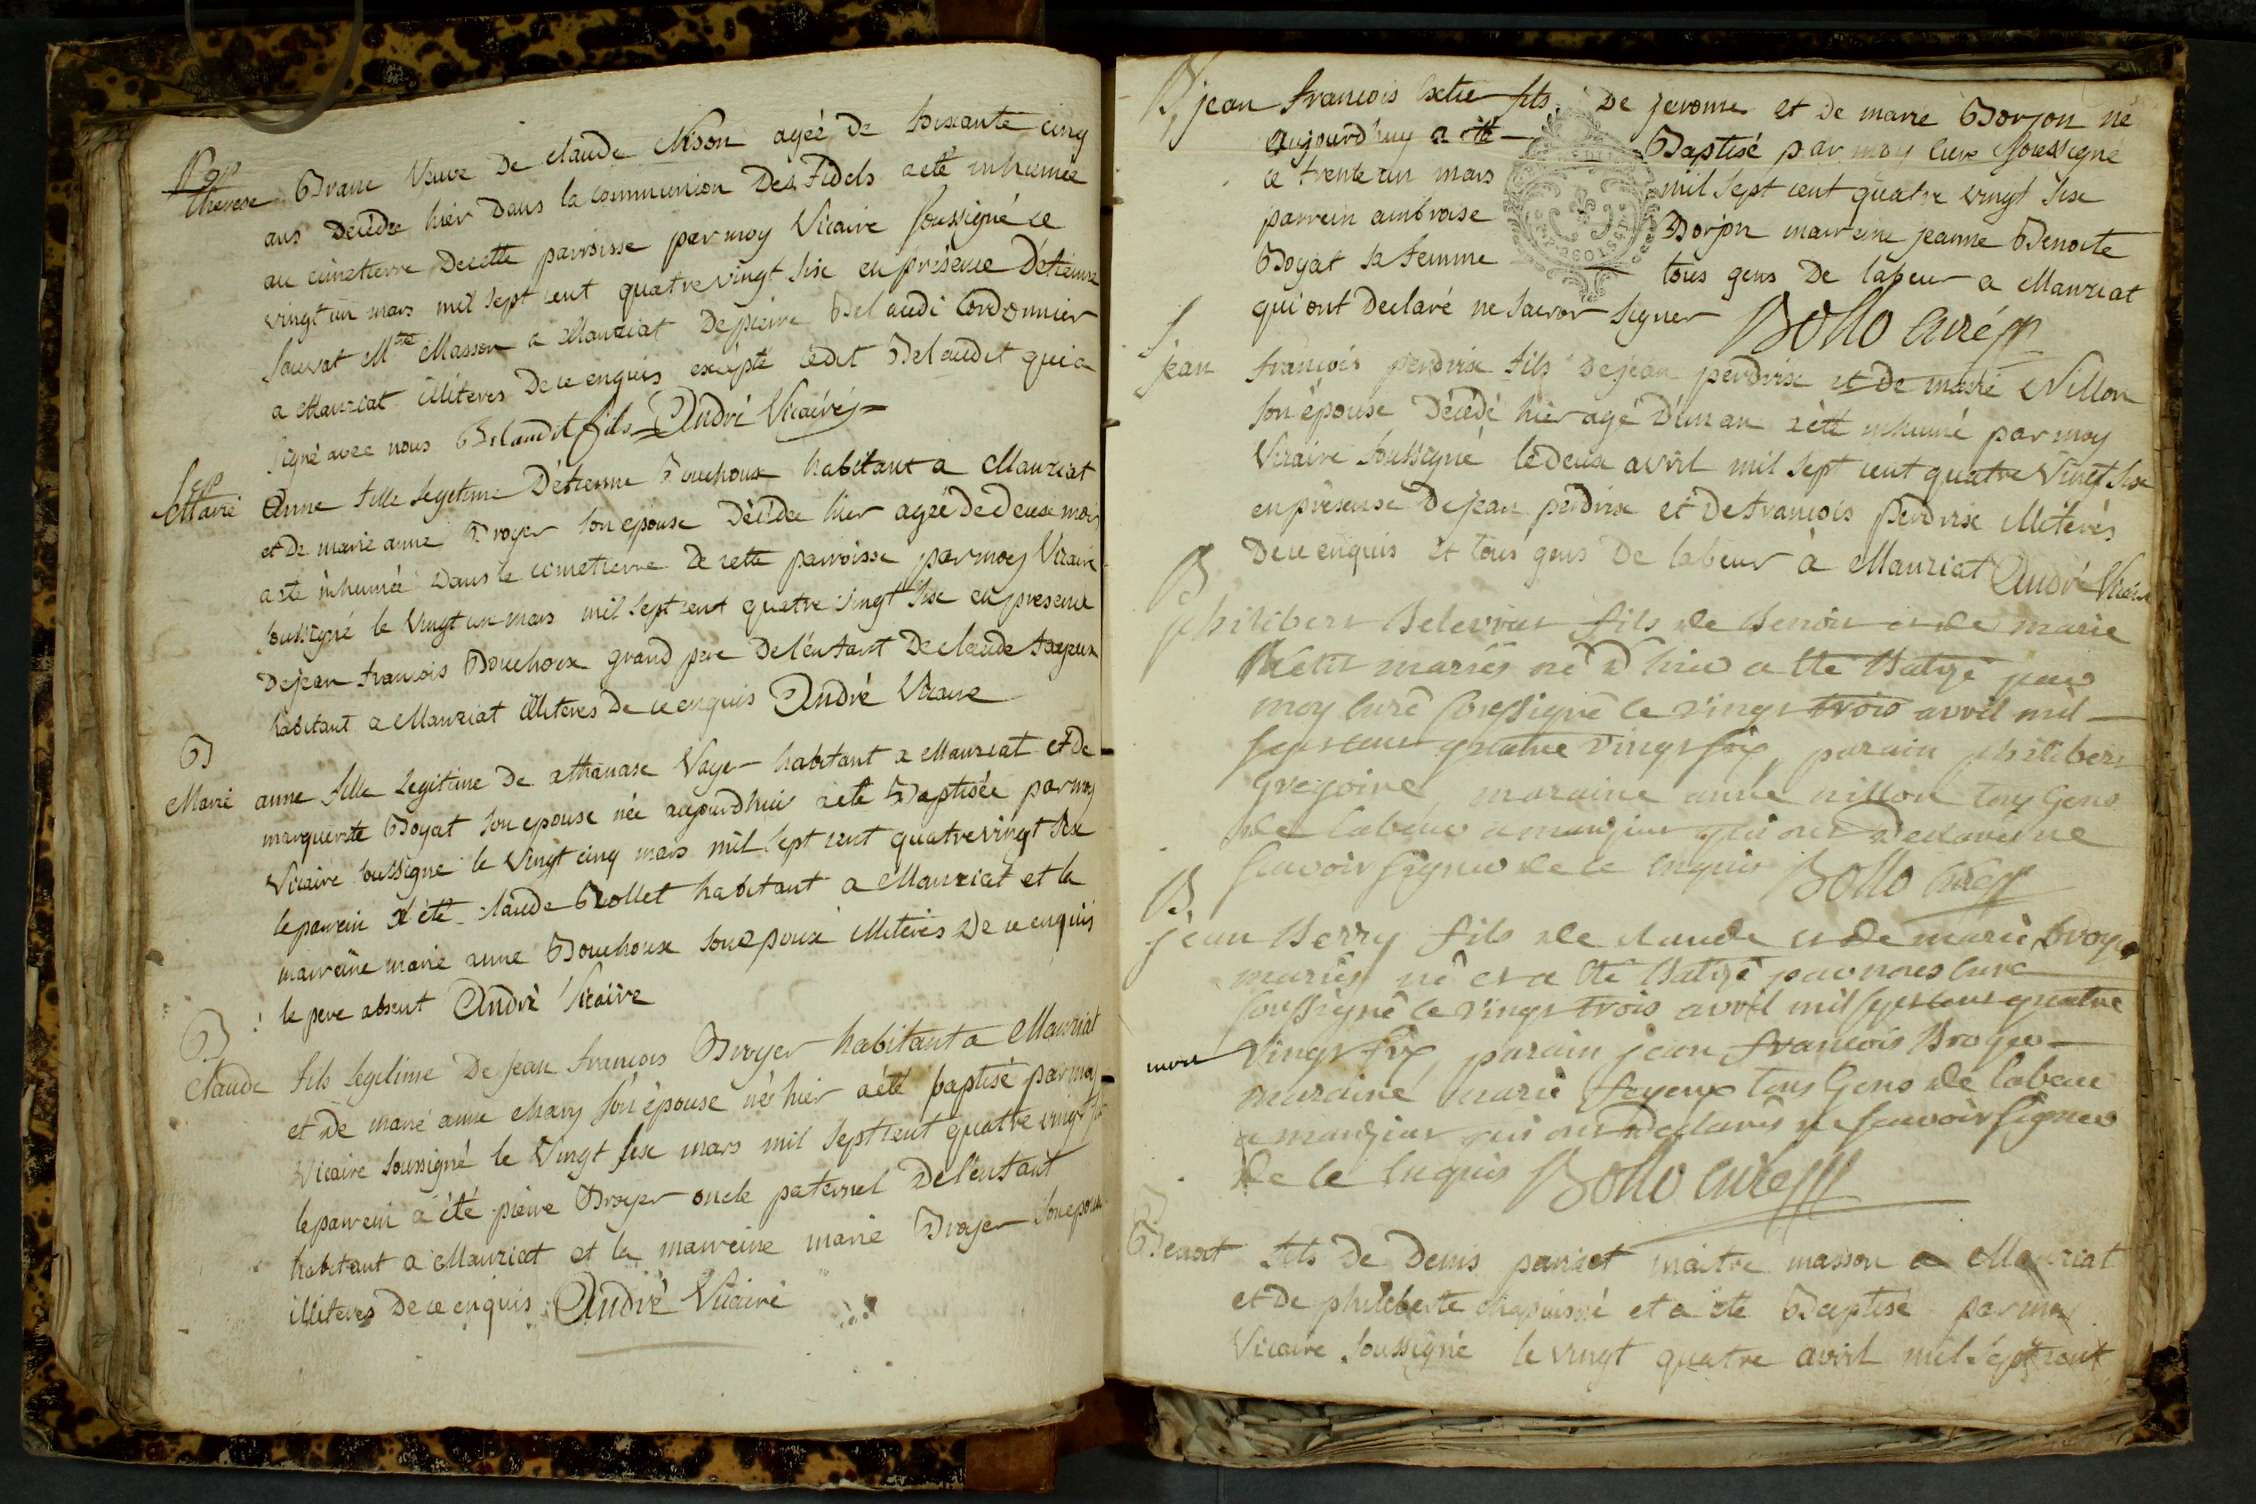 Sep
therese Brane Veuve De claude Nison agéé de soixante cinq
ans decédée hier Dans la communion Des Fidels aeté inhumée
au cimetierre Decette parroisse par moy Vicaire soussigné le
vingt un mars mil sept cent quatre vingt six en présence D'étienne
sauvat Mtre Masson a Manziat De pierre Belaudi Cordonnier
a Manziat illiteres De ce enquis excepté ledit Belaudit qui a
signé avec nous Belaudit fils André Vicaire
Sep
Marie Anne fille legitime D'étienne Bouchoux habitant a Manziat
et de marie anne Broyer son epouse Décédée hier agée de deux mois
a eté inhumée Dans le cimetierre De cette parroisse par moy Vicaire
soussigné le Vingt un mars mil sept cent quatre vingt six en presence
De jean francois Bouchoux grand pere De l'enfant De claude fayeux
habitant a Manziat illiteres De ce enquis André Vicaire
B
Marie anne fille legitime de athanase Voyer habitant a Manziat et De
marguerite Boyat son epouse née aujourdhui aeté Baptisée par moy
Vicaire soussigné le Vingt cinq mars mil sept cent quatre vingt six
le parrein a été claude Rollet habitant a Manziat et la
marreine marie anne Bouchoux son epouse illiterés De ce enquis
le pere absent André Vicaire
B
Claude fils legitime De jean francois Broyer habitant a Manziat
et De marie anne Chary son épouse né hier aété baptisé par moy
Vicaire soussigné le Vingt six mars mil sept cent quatre vingt six
le parrein a été pierre Broyer oncle paternel De l'enfant
habitant a Manziat et la marreine marie Broyer son epouse
illiteres De ce enquis André Vicaire
B jean francois fils De jerome et De marie Borjon né
aujourd'huy a eté Baptisé par moy curé soussigné
ce trente un mars mil sept cent quatre vingt six
parrein ambroise Borjon marreine jeanne Benoite
Boyat sa femme tous gens De labeur a Manziat
qui ont declaré ne savoir signer Bollo curé
S
jean francois perdrix fils De jean perdrix et De marie Nillon
son épouse Décédé hier agé D'un an aété inhumé par moy
Vicaire soussigné le deux avril mil sept cent quatre Vingt six
en présense De jean perdrix et De francois perdrix illiterés
De ce enquis et tous gens De labeur à Manziat André Vicaire
B
philibert fils de Benoit et de marie
petit mariés né d'hier a eté Batizé par
moy curé soussigné ce vingt trois avril mil
sept cent quatre vingt six, parain philibert
gregoire maraine anne nillon tous Gens
de labeur a manziat qui ont declarés ne
scavoir signer de ce enquis Bollo curé
B.
jean Berry fils de claude et de marie broyer
mariés né et a eté Batizé par nous curé
soussigné ce vingt trois avril mil sept cent quatre
mort vingt six parain jean francois Broyer
maraine marie fayeux tous Gens de labeur
a manziat qui ont declarés ne scavoir signer
de ce enquis Bollo curé
B
Benoit fils De Denis panset maitre masson a Manziat
et De philiberte chapuis né et a eté Baptisé par moy
Vicaire soussigné le vingt quatre avril mil sept cent